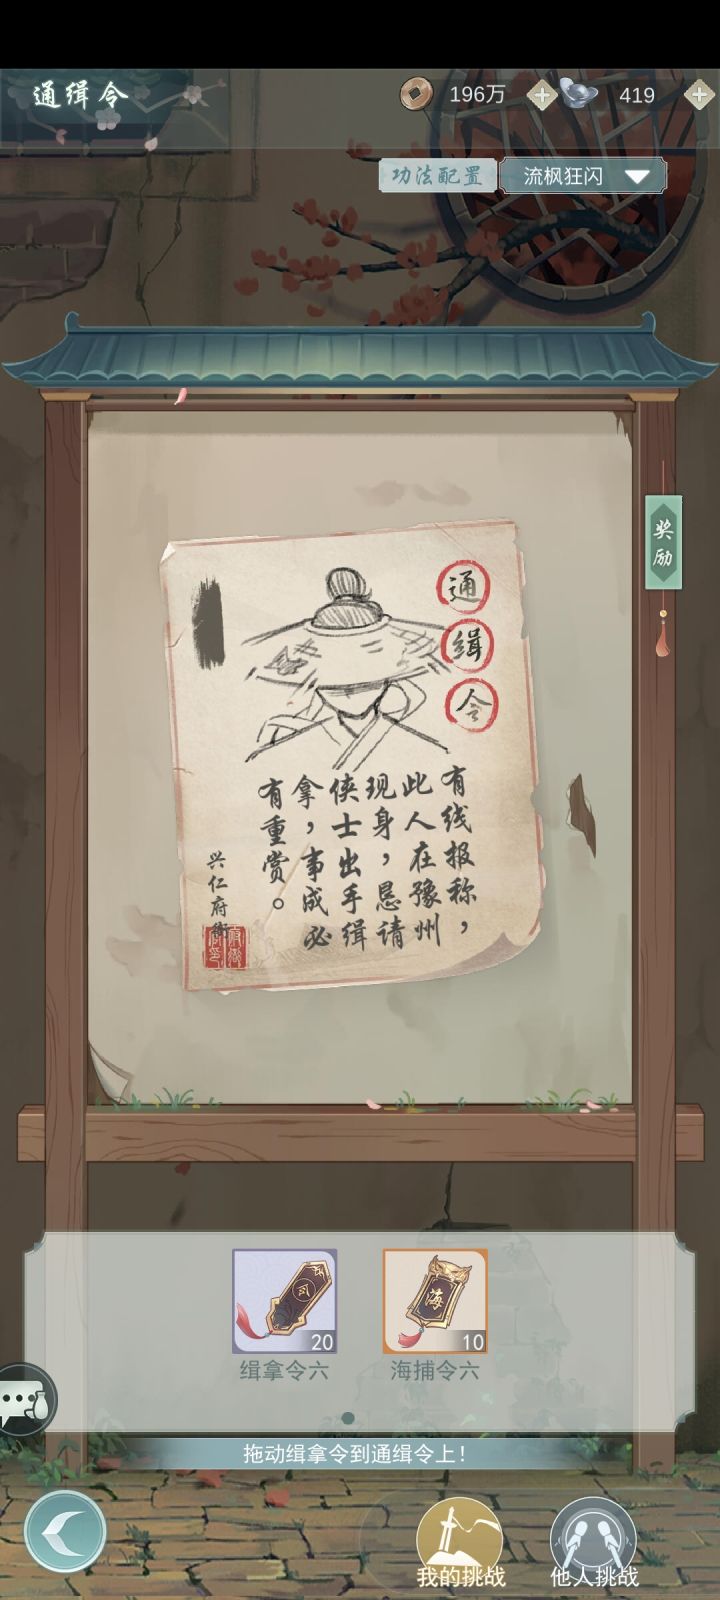 通缉令
196万
419
功法配置
流枫狂闪
奖励
通缉令
有线报称，
此人在豫州
现身，恳请
侠士出手缉
拿，事成必
有重赏。
兴仁府衙
20
海
10
缉拿令六
海捕令六
拖动缉拿令到通缉令上！
我的挑战
他人挑战